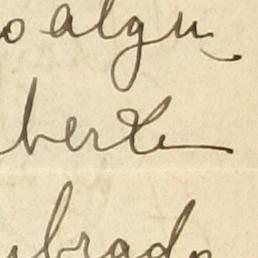 o algu
berte
brado